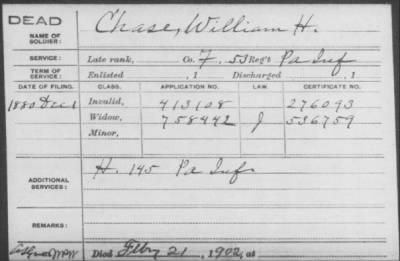 DEAD
NAME OF SOLDIER: Chase, William H.
SERVICE: Late rank, Co. F. 53 Reg't Pa Inf
TERM OF SERVICE: Enlisted , 1 Discharged , 1
DATE OF FILING. CLASS. APPLICATION NO. LAW. CERTIFICATE NO.
1880 Dec 1 Invalid, 413108 276093
Widow, 758442 J 536759
Minor,
ADDITIONAL SERVICES: H. 145 Pa Inf
REMARKS:
Died Feby 21, 1902, at